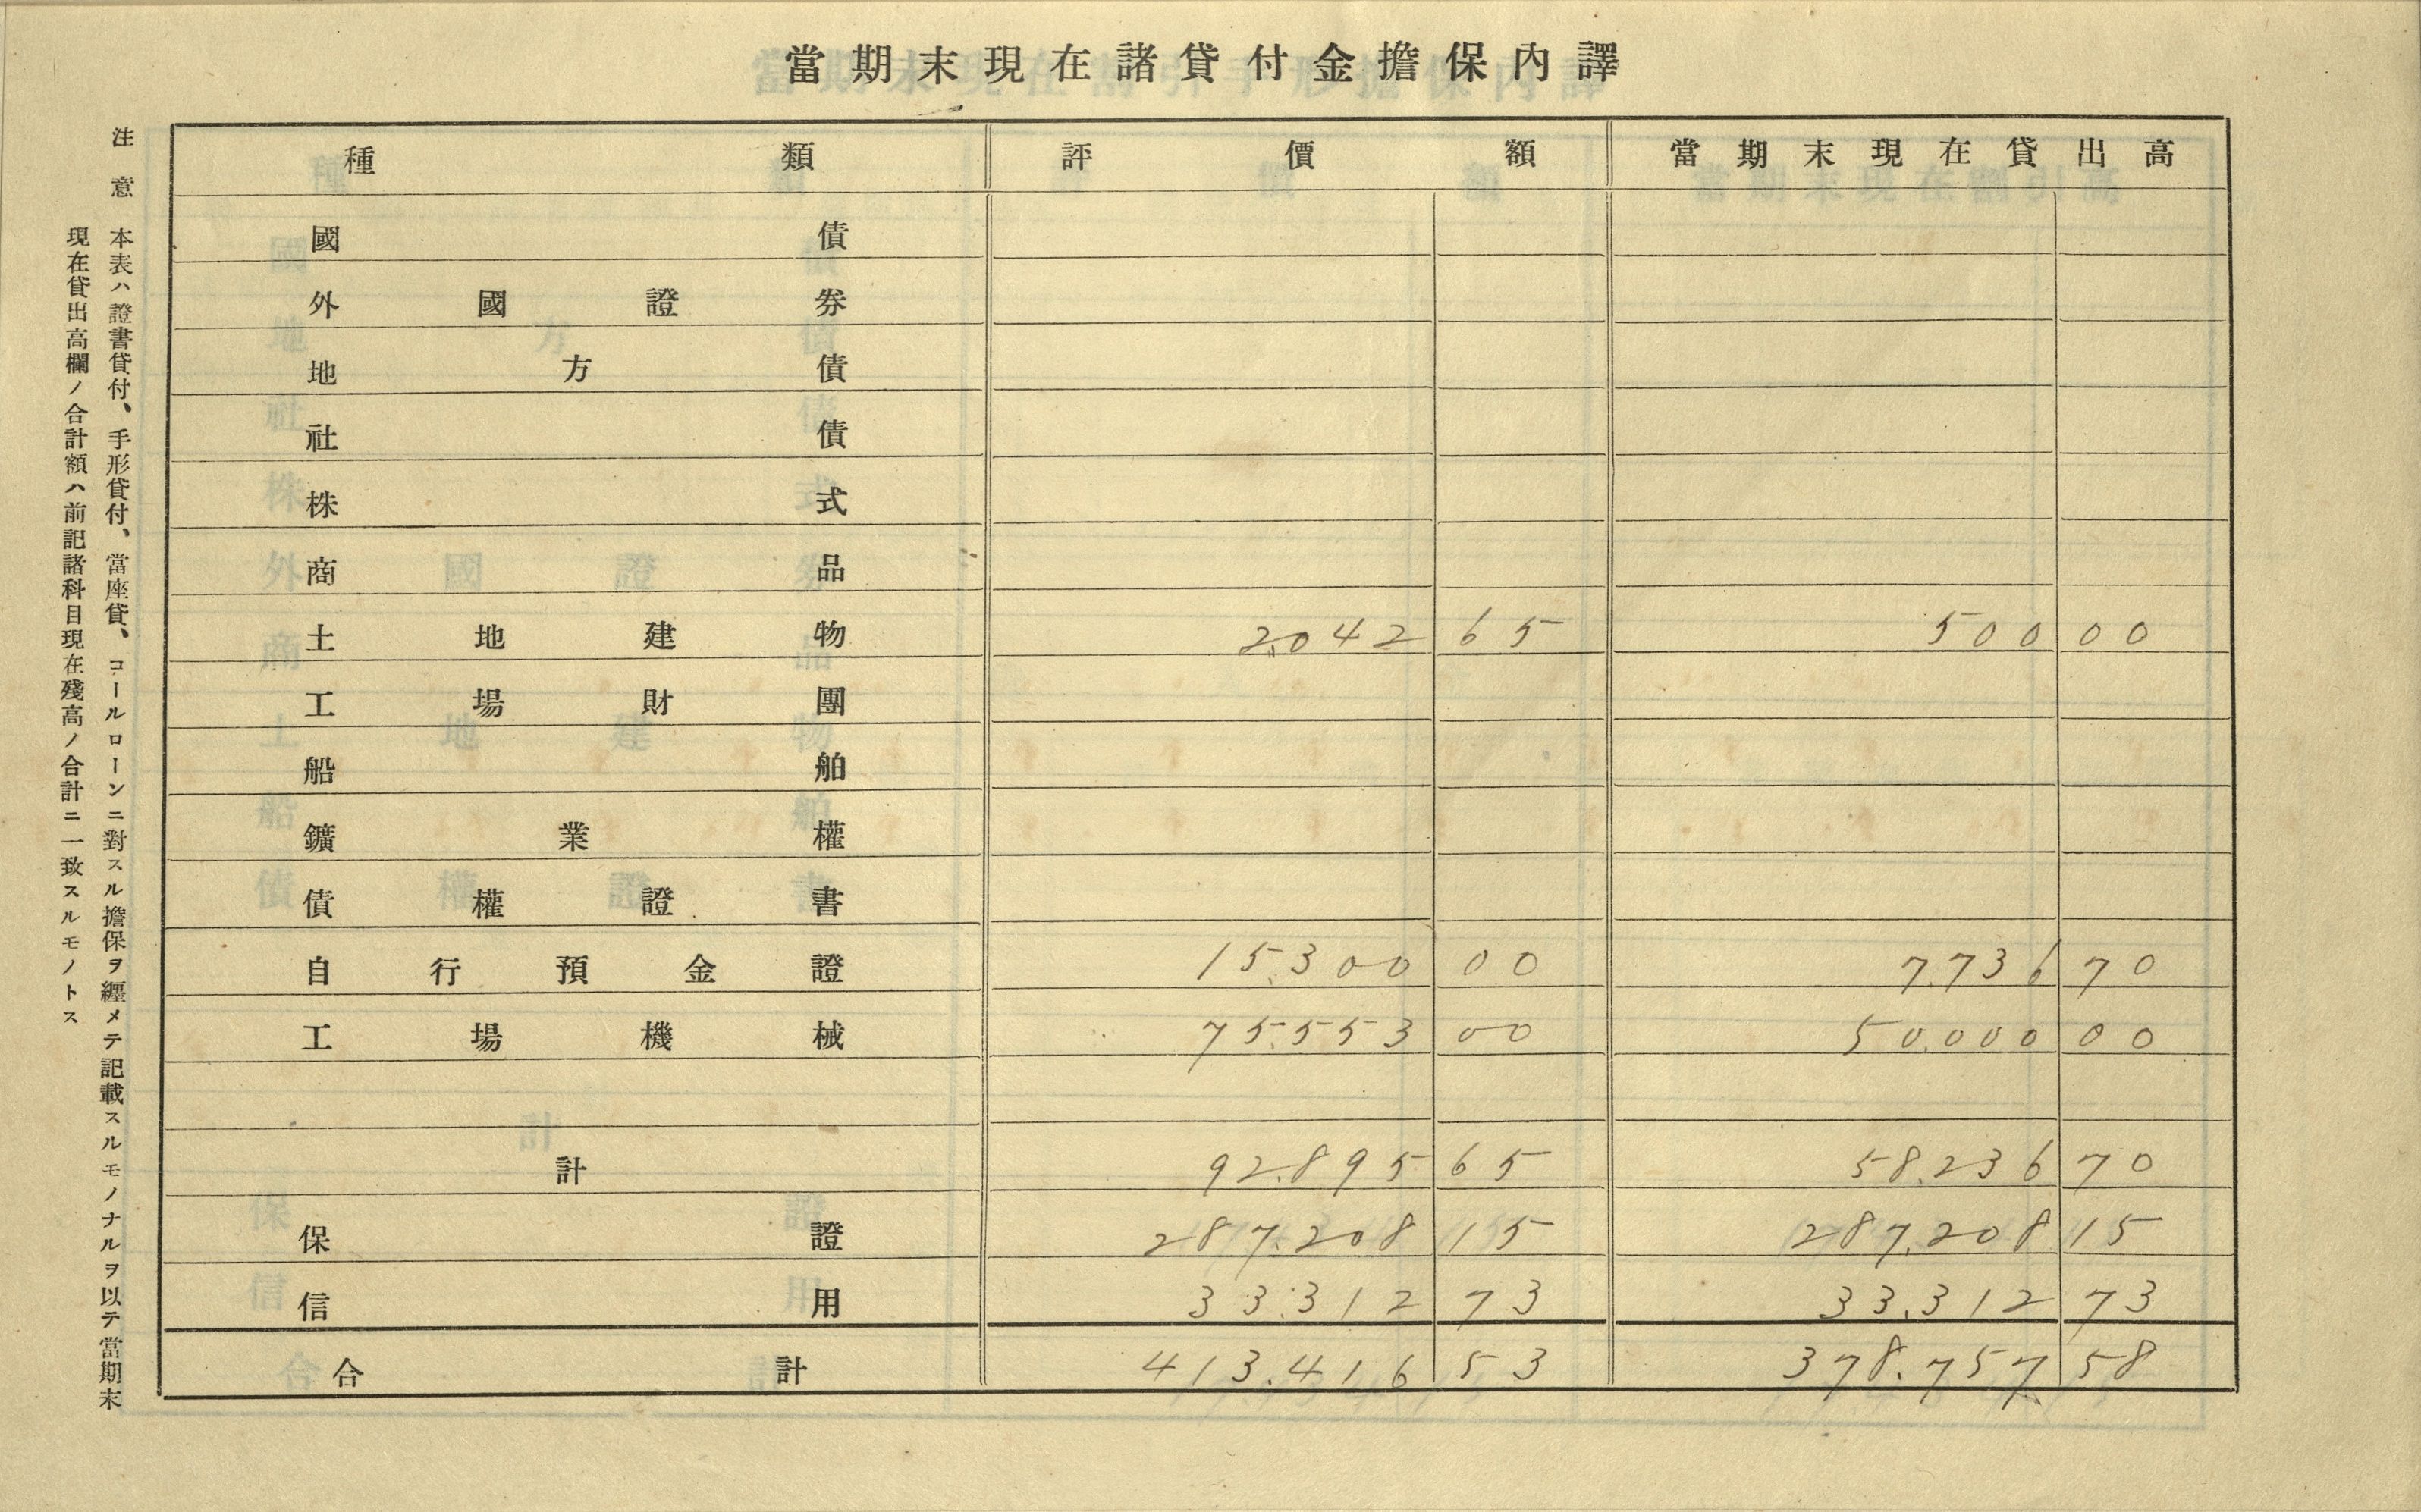 當期末現在諸貸付金擔保內譯
種類 評價額 當期末現在貸出高
國債
外國證券
地方債
社債
株式
商品
土地建物 2,042 65 500 00
工場財團
船舶
鑛業權
債權證書
自行預金證 15.300 00 7.736 70
工場機械 75.553 00 50.000 00
計 92.895 65 58.236 70
保證 287.208 15 287.208 15
信用 33.312 73 33.312 73
合計 413.416 53 378.757 58
注意 本表ハ證書貸付、手形貸付、當座貸、コールローンニ對スル擔保ヲ纒メテ記載スルモノナルヲ以テ當期末
現在貸出高欄ノ合計額ハ前記諸科目現在殘高ノ合計ニ一致スルモノトス